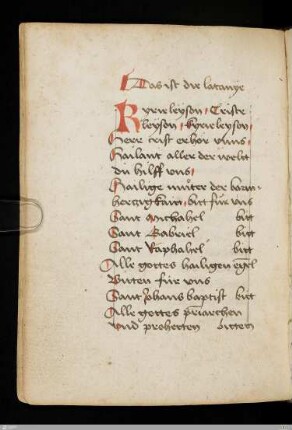 Das ist die latanye
Kyrieleyson Criste
leyson kyrieleyson
Herr crist erhör vnns
Hailant aller der welt
du hilff vns
Hailige můter der barm
hertzigkait bitt für vns
Sant Michahel bitt
Sant Gabriel bitt
Sant Raphahel bitt
Alle gottes hailigen engel
Bitten für vns
Sant Johans baptist bitt
Alle gottes patriarchen
vnd propheten bitten